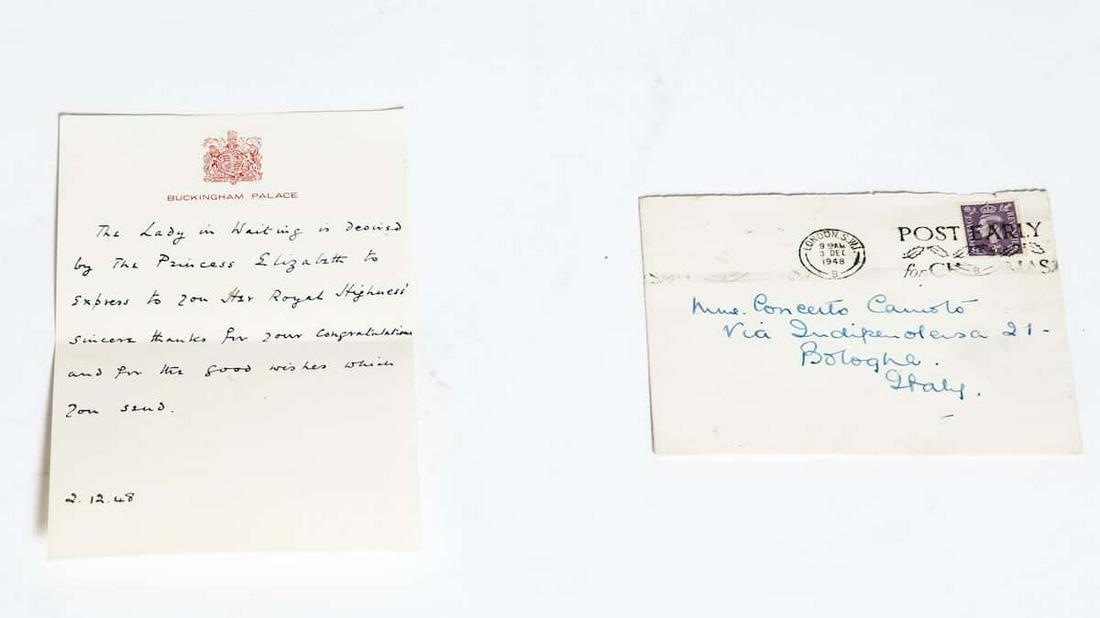 BUCKINGHAM PALACE
The Lady in Waiting is desired
by The Princess Elizabeth to
Express to you Her Royal Highness'
sincere thanks for your Congratulations
and for the good wishes which
you send.
2.12.48
LONDON.S.W.1
9 AM
3 DEC
1948
B
POST EARLY
for CH MAS
Mme. Concerto
Via Indipendensa 21-
Bologna.
Italy.